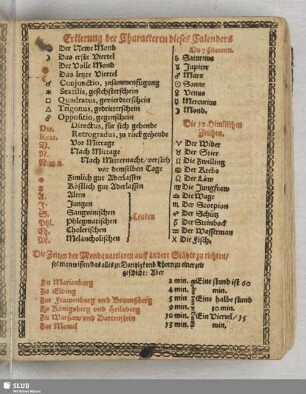 Erklerung der Charactieren dieses Calenders
Der Newe Mond
Das erste Viertel
Der Volle Mond
Das letzte Viertel
☌ Conjunctio, zusammenfügung
Sextilis, gesechsterschein
□ Quadratus, gevierdterschein
△ Trigonus, gedritterschein
☍ Oppositio, gegenschein
Dir. Directus, für sich gehende
Retr. Retrogradus, zu rück gehende
V. Vor Mittage
N. Nach Mittage
Nach Mitternacht, versteh
vor demselben Tage
Zimlich gut Aderlassen
Köstlich gut Aderlassen
A. Alten
J. Jungen
S. Sanguinischen
Phl. Phlegmatischen
Ch. Cholerischen
M. Melancholischen
Leuten
Die 7 Planeten.
♄ Saturnus
♃ Jupiter
♂ Mars
☉ Sonne
♀ Venus
☿ Mercurius
☽ Mond.
Die 12 Himlischen
Zeichen.
♈ Der Wider
♉ Der Stier
♊ Die Zwilling
♋ Der Krebs
♌ Der Löw
♍ Die Jungfraw
♎ Die Wage
♏ Der Scorpion
♐ Der Schütz
♑ Der Steinbock
♒ Der Wasserman
♓ Die Fische
Die Zeiten der Mondquartieren auff andere Städte zu richten/
sol man wissen/ das alles zu Dantzigk und Thorn zu einer zeit
geschicht: Aber
Zu Marienburg 2 min. Eine stund ist 60
Zu Elbing 4 min. min.
Zur Frawenburg und Braunßberg 6 min. Eine halbe stund
Zu Königsberg und Heilsberg 9 min. 30 min.
Zu Warßaw und Bartenstein 10 min. Ein Viertel/ 15
Zur Memel 13 min. min.
SLUB